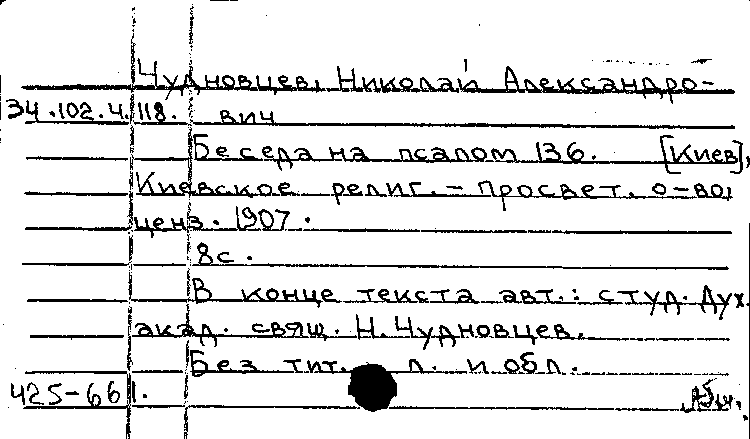 Чудновцев, Николай Александро-
34.102.4.118. вич
Беседа на псалом 136. [Киев],
Киевское религ.-просвет. о-во,
ценз. 1907.
8с.
В конце текста авт.: студ. Дух.
акад. свящ. Н. Чудновцев.
Без тит. л. и обл.
425-661.